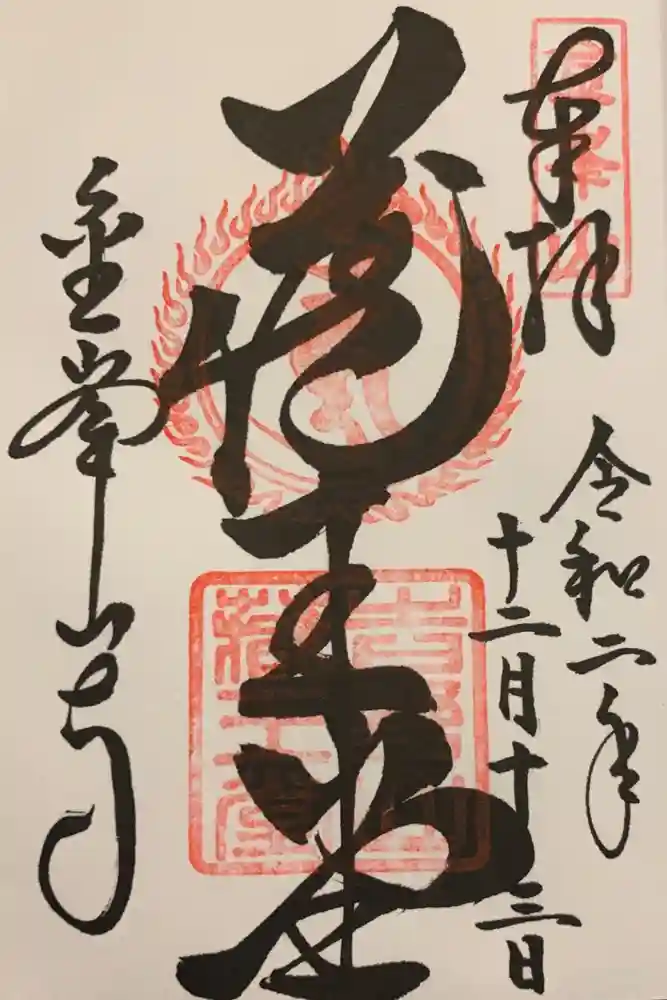 奉拝
令和二年
十二月十三日
蔵王堂
吉野山
蔵王堂
金峯山寺